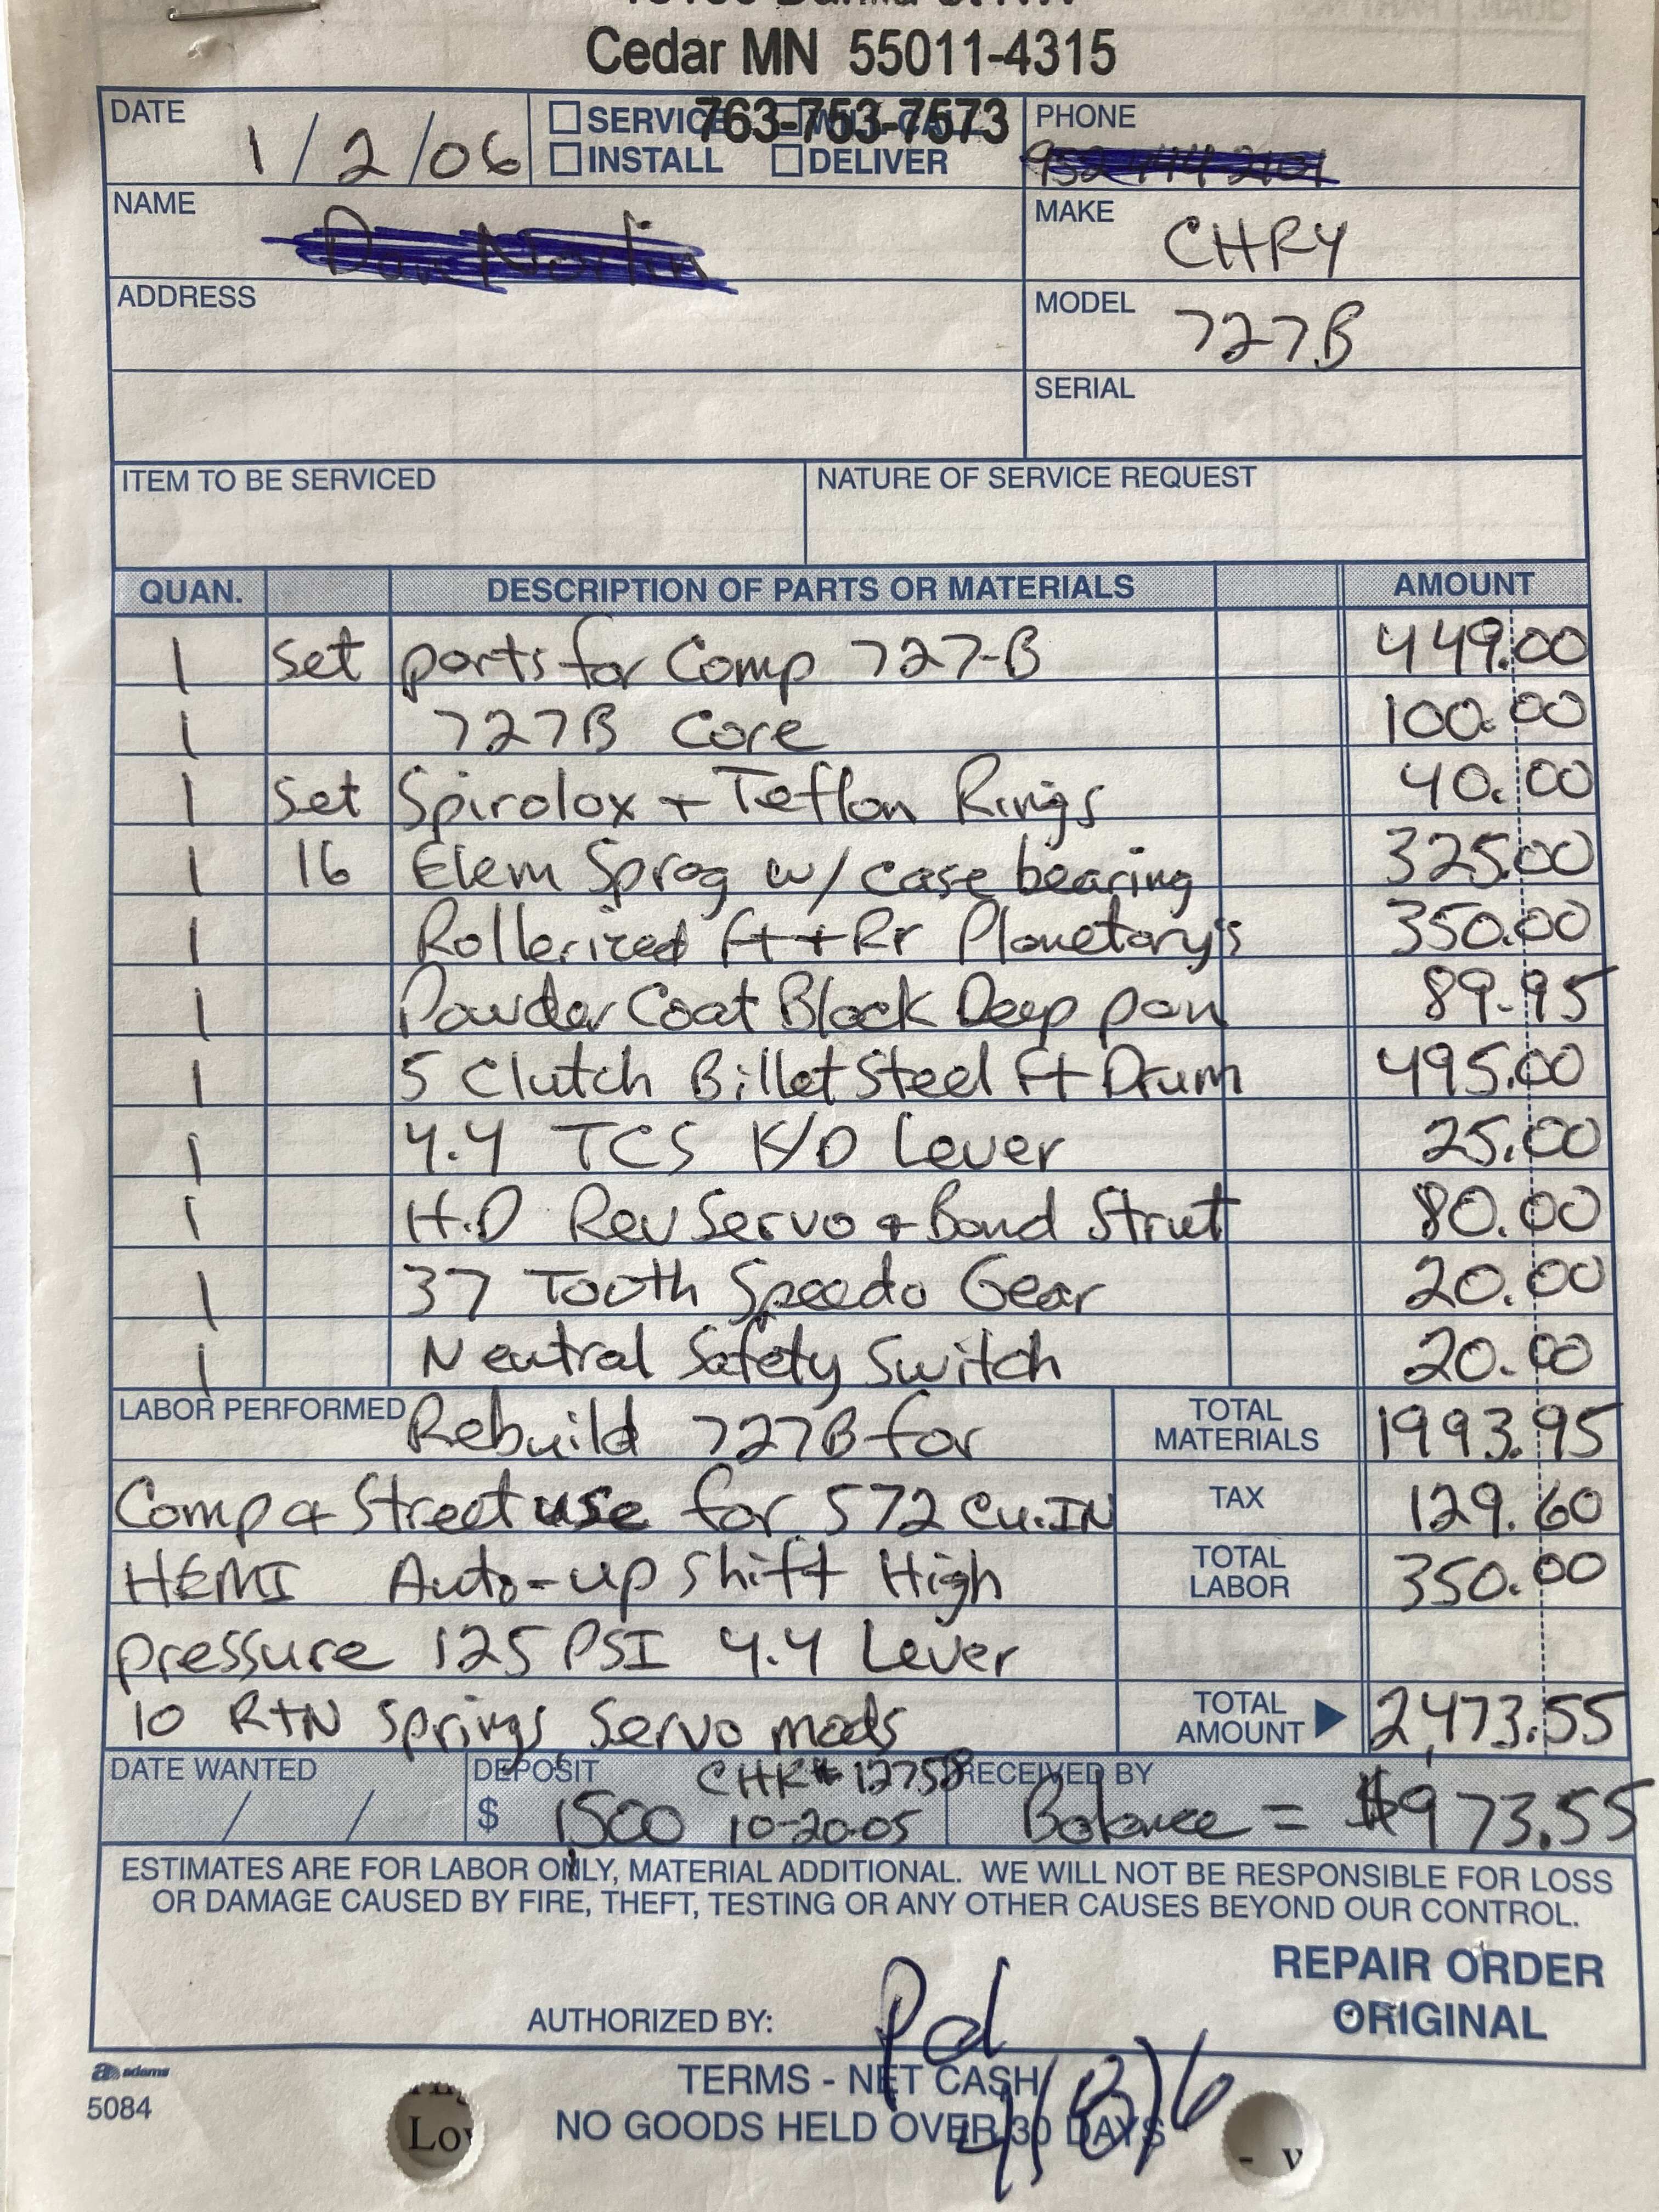 Cedar MN 55011-4315
763-753-7573
DATE 1/2/06
SERVICE
INSTALL DELIVER
PHONE
NAME
MAKE CHRY
ADDRESS
MODEL 727B
SERIAL
ITEM TO BE SERVICED
NATURE OF SERVICE REQUEST
QUAN. DESCRIPTION OF PARTS OR MATERIALS AMOUNT
1 Set parts for Comp 727-B 449.00
1 727B Core 100.00
1 Set Spirolox + Teflon Rings 40.00
1 16 Elem Sprag w/ case bearing 325.00
1 Rollerized ft + Rr Planetary's 350.00
1 Powder Coat Black Deep pan 89.95
1 5 Clutch Billet Steel ft Drum 495.00
1 4.4 TCS K/D Lever 25.00
1 H.D Rev Servo & Band Strut 80.00
1 37 Tooth Speedo Gear 20.00
1 Neutral Safety Switch 20.00
LABOR PERFORMED Rebuild 727B for
TOTAL MATERIALS 1993.95
Comp & Street use for 572 Cu.IN
TAX 129.60
HEMI Auto-up shift High
TOTAL LABOR 350.00
pressure 125 PSI 4.4 Lever
10 RTN Springs, Servo mods
TOTAL AMOUNT 2,473.55
DATE WANTED / /
DEPOSIT CHK# 12758
$ 1500 10-20-05
RECEIVED BY
Balance = $973.55
ESTIMATES ARE FOR LABOR ONLY, MATERIAL ADDITIONAL. WE WILL NOT BE RESPONSIBLE FOR LOSS
OR DAMAGE CAUSED BY FIRE, THEFT, TESTING OR ANY OTHER CAUSES BEYOND OUR CONTROL.
REPAIR ORDER
ORIGINAL
AUTHORIZED BY: Pd
adams
5084
TERMS - NET CASH
NO GOODS HELD OVER 30 DAYS